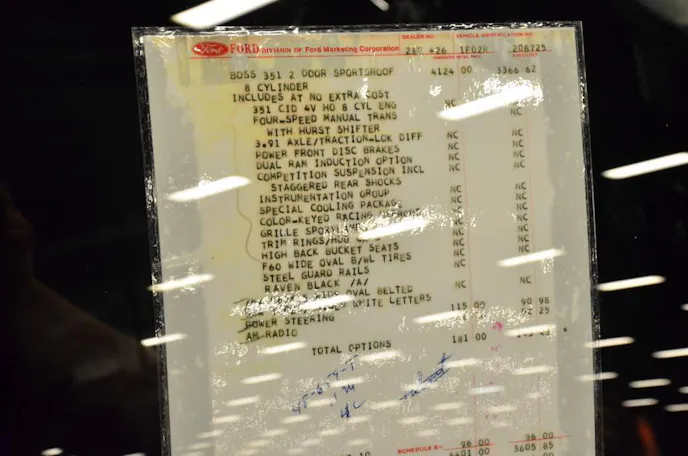 Ford FORD DIVISION OF Ford Marketing Corporation
DEALER NO. VEHICLE IDENTIFICATION NO.
426 1F02R 208725
BOSS 351 2 DOOR SPORTSROOF 4124 00 3366 62
8 CYLINDER
INCLUDES AT NO EXTRA COST
351 CID 4V HO 8 CYL ENG NC NC
FOUR-SPEED MANUAL TRANS NC
WITH HURST SHIFTER
3.91 AXLE/TRACTION-LOK DIFF NC NC
POWER FRONT DISC BRAKES NC NC
DUAL RAM INDUCTION OPTION NC NC
COMPETITION SUSPENSION INCL NC NC
STAGGERED REAR SHOCKS
INSTRUMENTATION GROUP NC NC
SPECIAL COOLING PACKAGE NC NC
COLOR-KEYED RACING NC NC
GRILLE NC NC
TRIM RINGS/HUB NC NC
HIGH BACK BUCKET SEATS NC NC
F60 WIDE OVAL B/WL TIRES NC NC
STEEL GUARD RAILS
RAVEN BLACK /A/ NC NC
OVAL BELTED
WHITE LETTERS 115 00 90 98
POWER STEERING
AM-RADIO
TOTAL OPTIONS 181 00
SCHEDULE B 96 00 96 00
3605 85